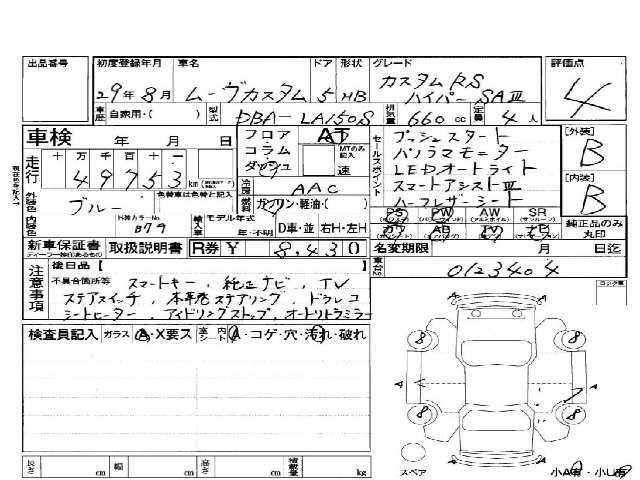 出品番号 初度登録年月 車名 ドア 形状 グレード 評価点
29年8月 ムーヴカスタム 5 HB カスタムRS ハイパーSAⅢ 4
車歴 自家用・( ) 型式 DBA-LA150S 排気量 660 cc 定員 4 人
車検 年 月 日 フロア AT セールスポイント プッシュスタート [外装] B
走行 十 万 千 百 十 一 コラム MTのみ記入 パノラマモニター
49753 km ダッシュ 速 LEDオートライト [内装] B
外装色 ブルー 色替車は色替と記入 冷房 AAC スマートアシストⅢ
燃料 ガソリン・軽油・( ) ハーフレザーシート
内装色 外装カラーNo. B79 輸入車 モデル年式 年・不明 D車・並 右H・左H
PS PW AW SR 純正品のみ丸印
新車保証書 取扱説明書 R券 ¥ 8,430 名変期限 月 日迄
注意事項 後日品【 車台No. 0123404
不具合箇所等 スマートキー, 純正ナビ, TV ロック車
ステアスイッチ, 本革巻ステアリング, ドラレコ
シートヒーター, アイドリングストップ, オートリトラミラー
検査員記入 ガラス A・X要ス 室内 シート A・コゲ・穴・汚れ・破れ
8 8
A A
8 8
長さ cm 幅 cm 高さ cm 積載量 kg
スペア 小A有・小U有